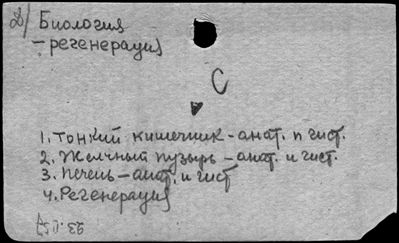 Д/ Биология
– регенерация
С
1. Тонкий кишечник – анат. и гист.
2. Желчный пузырь – анат. и гист.
3. Печень – анат. и гист
4. Регенерация